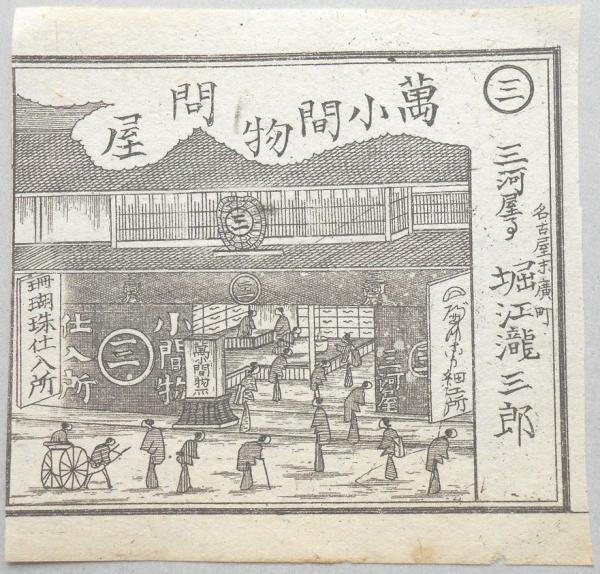 ㊂
名古屋末廣町
三河屋
堀江瀧三郎
萬小間物問屋
三
河
三
細工所
三
三河屋
萬小間物
小間物
三
仕入所
珊瑚珠仕入所